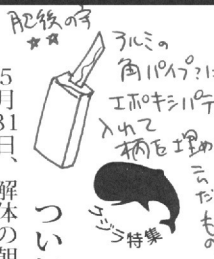 肥後の守
アルミの
角パイプ?に
エポキシパテ
入れて
柄を埋め
こんだ
もの
クジラ特集
5月31日、解体の朝
つい